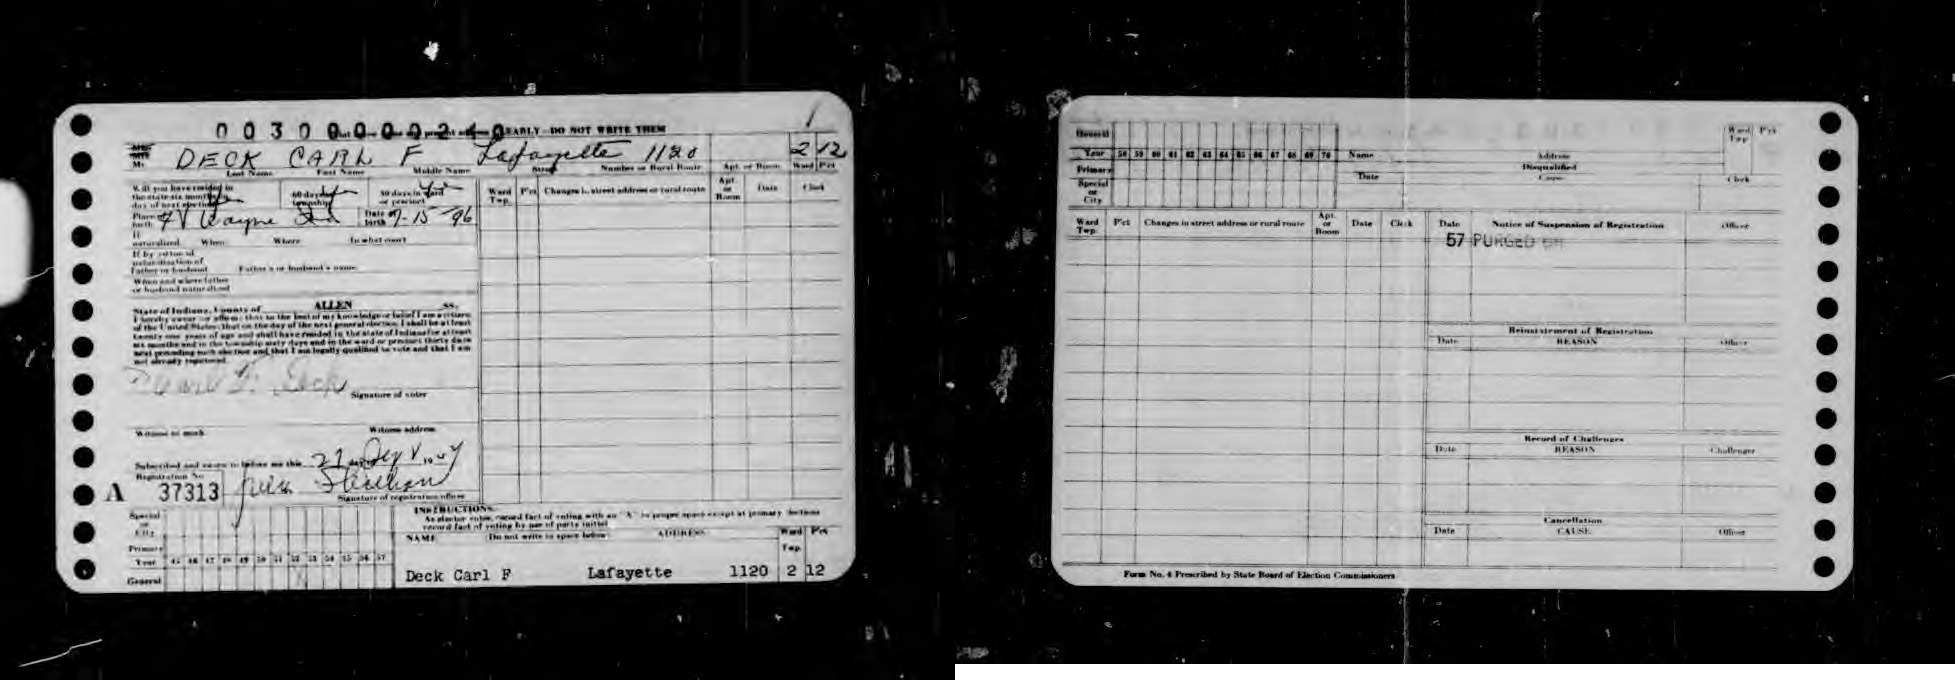 0 0 3 0 0 0 0 0 2 4 0 EARLY—DO NOT WRITE THEM
Mr. DECK CARL F Lafayette 1120 2 12
Last Name First Name Middle Name Street Number or Rural Route Apt. or Room Ward Pct
Will you have resided in the state six months day of next election
60 days township
30 days in ward or precinct
Place of birth Ft Wayne Ind Date of birth 7-15-96
If naturalized When Where In what court
If by virtue of naturalization of Father or husband Father's or husband's name
When and where father or husband naturalized
Ward Twp. Pct Changes in street address or rural route Apt. or Room Date Clerk
State of Indiana, County of ALLEN ss.
I hereby swear or affirm that to the best of my knowledge or belief I am a citizen
of the United States; that on the day of the next general election, I shall be at least
twenty one years of age and shall have resided in the state of Indiana for at least
six months and in the township sixty days and in the ward or precinct thirty days
next preceding such election and that I am legally qualified to vote and that I am
not already registered.
Carl F. Deck
Signature of voter
Witness to mark Witness address
Subscribed and sworn to before me this 27 day Sept 19
Registration No
A 37313
Signature of registration officer
INSTRUCTIONS
As elector votes, record fact of voting with an "A" in proper space except at primary elections
record fact of voting by use of party initial
Special or City
Primary
Year 45 46 47 48 49 50 51 52 53 54 55 56 57
General
NAME Do not write in space below ADDRESS Ward Twp. Pct
Deck Carl F Lafayette 1120 2 12
General
Year 58 59 60 61 62 63 64 65 66 67 68 69 70
Primary
Special or City
Name Address Ward Twp Pct
Disqualified
Date Cause Clerk
Ward Twp. Pct Changes in street address or rural route Apt. or Room Date Clerk
Date Notice of Suspension of Registration Officer
57 PURGED
Reinstatement of Registration
Date REASON Officer
Record of Challenges
Date REASON Challenger
Cancellation
Date CAUSE Officer
Form No. 4 Prescribed by State Board of Election Commissioners